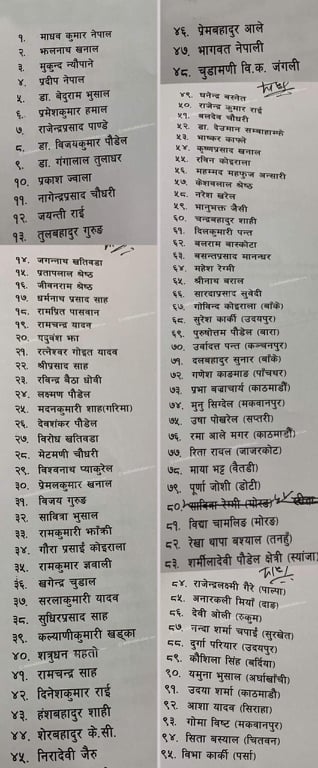 १. माधव कुमार नेपाल
२. झलनाथ खनाल
३. मुकुन्द न्यौपाने
४. प्रदीप नेपाल
५. डा. बेदुराम भुसाल
६. प्रमेशकुमार हमाल
७. राजेन्द्रप्रसाद पाण्डे
८. डा. विजयकुमार पौडेल
९. डा. गंगालाल तुलाधर
१०. प्रकाश ज्वाला
११. नागेन्द्रप्रसाद चौधरी
१२. जयन्ती राई
१३. तुलबहादुर गुरुङ
१४. जगन्नाथ खतिवडा
१५. प्रतापलाल श्रेष्ठ
१६. जीवनराम श्रेष्ठ
१७. धर्मनाथ प्रसाद साह
१८. रामप्रित पासवान
१९. रामचन्द्र यादव
२०. यदुवंश झा
२१. रत्नेश्वर गोइत यादव
२२. श्रीप्रसाद साह
२३. रविन्द्र बैठा धोवी
२४. लक्ष्मण पौडेल
२५. मदनकुमारी शाह(गरिमा)
२६. देवशंकर पौडेल
२७. विरोध खतिवडा
२८. मेटमणी चौधरी
२९. विश्वनाथ प्याकुरेल
३०. प्रेमलकुमार खनाल
३१. विजय गुरुङ
३२. सावित्रा भुसाल
३३. रामकुमारी झाँक्री
३४. गौरा प्रसाई कोइराला
३५. रामकुमार ज्ञवाली
३६. खगेन्द्र चुडाल
३७. सरलाकुमारी यादव
३८. सुधिरप्रसाद साह
३९. कल्याणीकुमारी खड्का
४०. शत्रुधन महतो
४१. रामचन्द्र साह
४२. दिनेशकुमार राई
४३. हंशबहादुर शाही
४४. शेरबहादुर के.सी.
४५. निरादेवी जैरु
४६. प्रेमबहादुर आले
४७. भागवत नेपाली
४८. चुडामणी वि.क. जंगली
४९. धनेन्द्र बस्नेत
५०. राजेन्द्र कुमार राई
५१. बलदेव चौधरी
५२. डा. देउमान सम्बाहाम्फे
५३. भाष्कर काफ्ले
५४. कृष्णप्रसाद खनाल
५५. रविन कोइराला
५६. महम्मद महफुज अन्सारी
५७. केशवलाल श्रेष्ठ
५८. नरेश खरेल
५९. भानुभक्त जैसी
६०. चन्द्रबहादुर शाही
६१. दिलकुमारी पन्त
६२. बलराम बास्कोटा
६३. बसन्तप्रसाद मानन्धर
६४. महेश रेग्मी
६५. श्रीनाथ बराल
६६. सारदाप्रसाद सुवेदी
६७. गोविन्द कोइराला (बाँके)
६८. सुरेश कार्की (उदयपुर)
६९. पुरुषोत्तम पौडेल (बारा)
७०. उर्वादत्त पन्त (कञ्चनपुर)
७१. दलबहादुर सुनार (बाँके)
७२. गणेश काङमाङ (पाँचथर)
७३. प्रभा बज्राचार्य (काठमाडौं)
७४. मुनु सिग्देल (मकवानपुर)
७५. उषा पोखरेल (सप्तरी)
७६. रमा आले मगर (काठमाडौं)
७७. रिता रावल (जाजरकोट)
७८. माया भट्ट (वैतडी)
७९. पूर्णा जोशी (डोटी)
८०. सावित्रा रेग्मी (मोरङ)
८१. विद्या चामलिङ (मोरङ)
८२. रेखा थापा बश्याल (तनहुँ)
८३. शर्मीलादेवी पौडेल क्षेत्री (स्यांजा)
८४. राजेन्द्रलक्ष्मी गैरे (पाल्पा)
८५. अनारकली मियाँ (दाङ)
८६. देवी ओली (रुकुम)
८७. नन्दा शर्मा चपाई (सुरखेत)
८८. दुर्गा परियार (उदयपुर)
८९. कौशिला सिंह (बर्दिया)
९०. यमुना भुसाल (अर्घाखाँची)
९१. उदया शर्मा (काठमाडौं)
९२. आशा यादव (सिराहा)
९३. गोमा विष्ट (मकवानपुर)
९४. सिता बस्याल (चितवन)
९५. विभा कार्की (पर्सा)